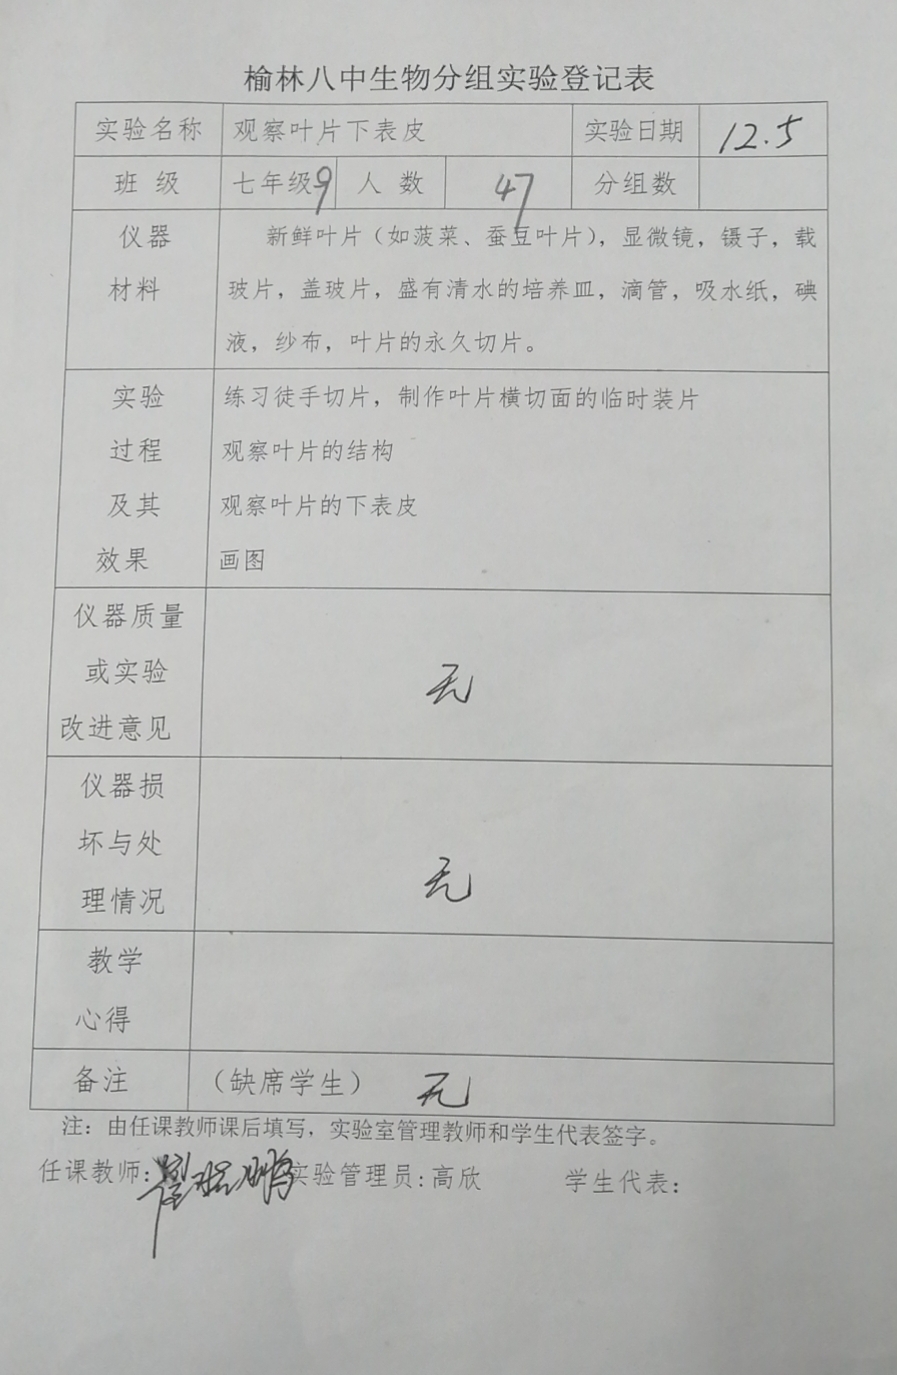 榆林八中生物分组实验登记表
实验名称 观察叶片下表皮 实验日期 12.5
班 级 七年级9 人 数 47 分组数
仪器 新鲜叶片（如菠菜、蚕豆叶片），显微镜，镊子，载
材料 玻片，盖玻片，盛有清水的培养皿，滴管，吸水纸，碘
液，纱布，叶片的永久切片。
实验 练习徒手切片，制作叶片横切面的临时装片
过程 观察叶片的结构
及其 观察叶片的下表皮
效果 画图
仪器质量
或实验 无
改进意见
仪器损
坏与处
理情况 无
教学
心得
备注 （缺席学生） 无
注：由任课教师课后填写，实验室管理教师和学生代表签字。
任课教师： 实验管理员：高欣 学生代表：